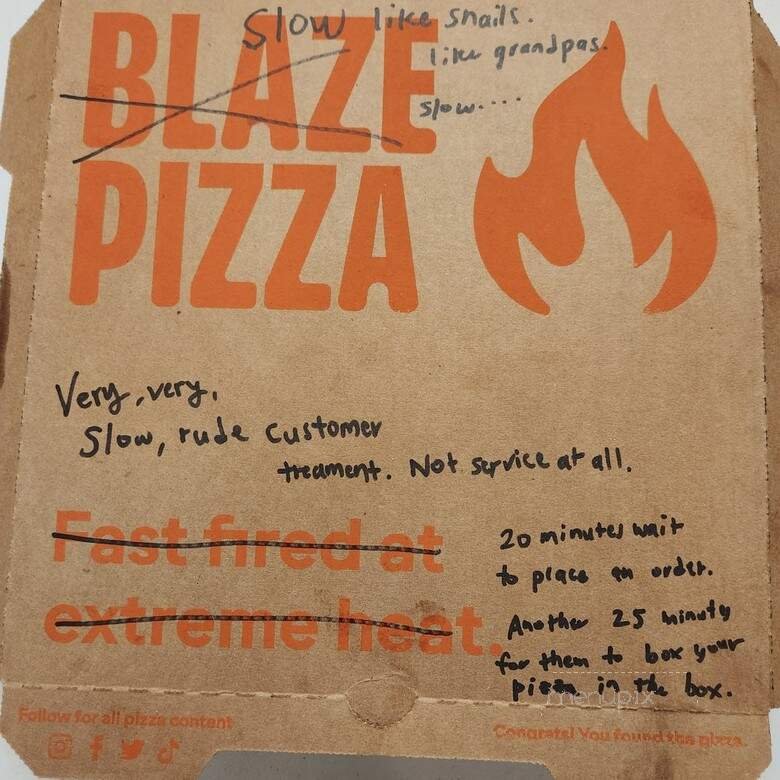 Slow like snails.
like grandpas.
slow....
BLAZE
PIZZA
Very, very,
Slow, rude customer
treament. Not service at all.
Fast fired at
extreme heat.
20 minutes wait
to place an order.
Another 25 minuty
for them to box your
pizza in the box.
menupix
Follow for all pizza content
Congrats! You found the pizza.